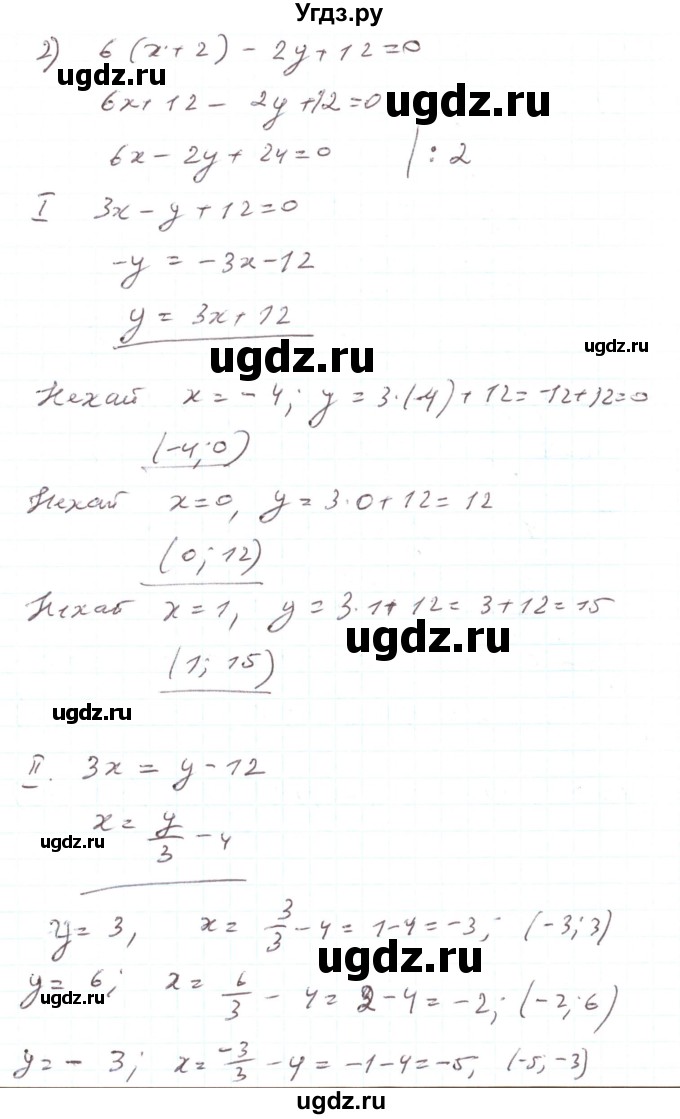 Угдз.ру
2) 6(x+2) - 2y + 12 = 0
ugdz.ru
6x + 12 - 2y + 12 = 0
ugdz.ru
6x - 2y + 24 = 0 | : 2
I 3x - y + 12 = 0
-y = -3x - 12
y = 3x + 12
ugdz.ru
ugdz.ru
ugdz.ru
Нехай x = -4; y = 3·(-4) + 12 = -12 + 12 = 0
(-4; 0)
Нехай x = 0, y = 3·0 + 12 = 12
(0; 12)
Нехай x = 1, y = 3·1 + 12 = 3 + 12 = 15
ugdz.ru
(1; 15)
ugdz.ru
II. 3x = y - 12
x = y/3 - 4
ugdz.ru
y = 3, x = 3/3 - 4 = 1 - 4 = -3; (-3; 3)
ugdz.ru
y = 6; x = 6/3 - 4 = 2 - 4 = -2; (-2; 6)
ugdz.ru
y = -3; x = -3/3 - 4 = -1 - 4 = -5; (-5; -3)
ugdz.ru